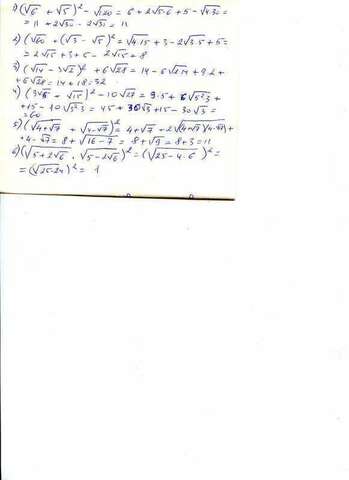 1) (√6 + √5)² - √120 = 6 + 2√5·6 + 5 - √4·30 =
= 11 + 2√30 - 2√30 = 11
2) √60 + (√3 - √5)² = √4·15 + 3 - 2√3·5 + 5 =
= 2√15 + 3 + 5 - 2√15 = 8
3) (√14 - 3√2)² + 6√28 = 14 - 6√2·14 + 9·2 +
+ 6√28 = 14 + 18 = 32
4) (3√5 + √15)² - 10√28 = 9·5 + 6√5²3 +
+ 15 - 10√5²3 = 45 + 30√3 + 15 - 30√3 =
= 60
5) (√4+√7 + √4-√7)² = 4+√7 + 2√(4+√7)(4-√7) +
+ 4-√7 = 8 + √16-7 = 8 + √9 = 8+3 = 11
6) (√5+2√6 · √5-2√6)² = (√25-4·6)² =
= (√25-24)² = 1